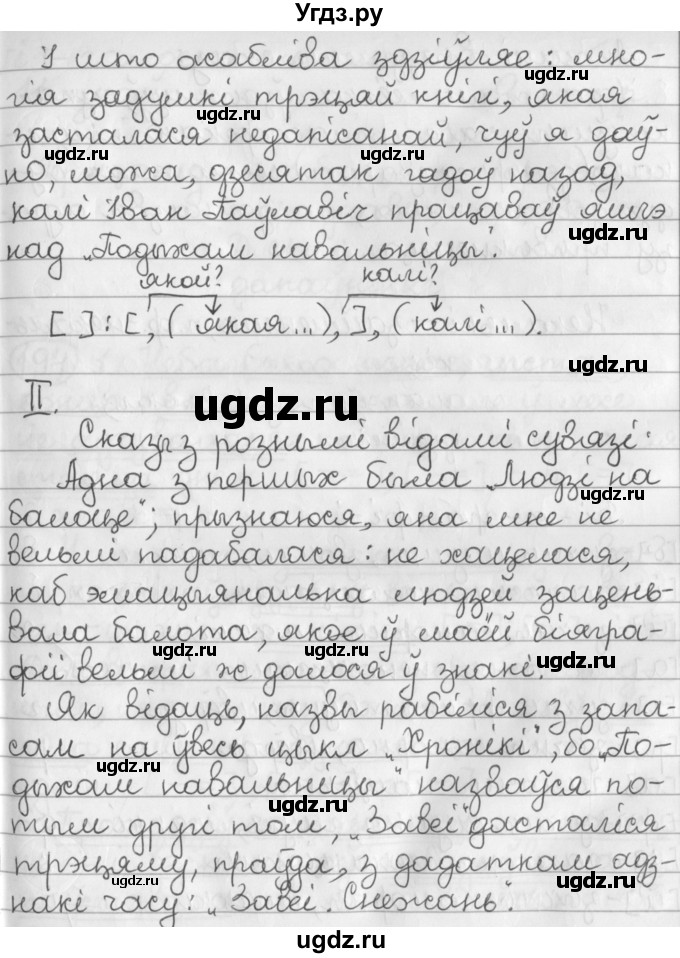 Угдз.ру
І што асабліва здзіўляе: мно-
гія задумкі трэцяй кнігі, якая
засталася недапісанай, чуў я даў-
но, можа, дзесятак гадоў назад,
калі Іван Паўлавіч працаваў яшчэ
над „Подыхам навальніцы".
якой? калі?
[ ]: [, ( якая...), ], ( калі...).
II.
Сказы з рознымі відамі сувязі:
Адна з першых была „Людзі на
балоце"; прызнаюся, яна мне не
вельмі падабалася: не хацелася,
каб эмацыянальна людзей зацень-
вала балота, якое ў маёй біягра-
фіі вельмі ж далося ў знакі.
Як відаць, назвы рабіліся з запа-
сам на ўвесь цыкл „Хронікі", бо „По-
дыхам навальніцы" назваўся по-
тым другі том, „Завеі" дасталіся
трэцяму, праўда, з дадаткам адз-
накі часу: „Завеі. Снежань".
ugdz.ru